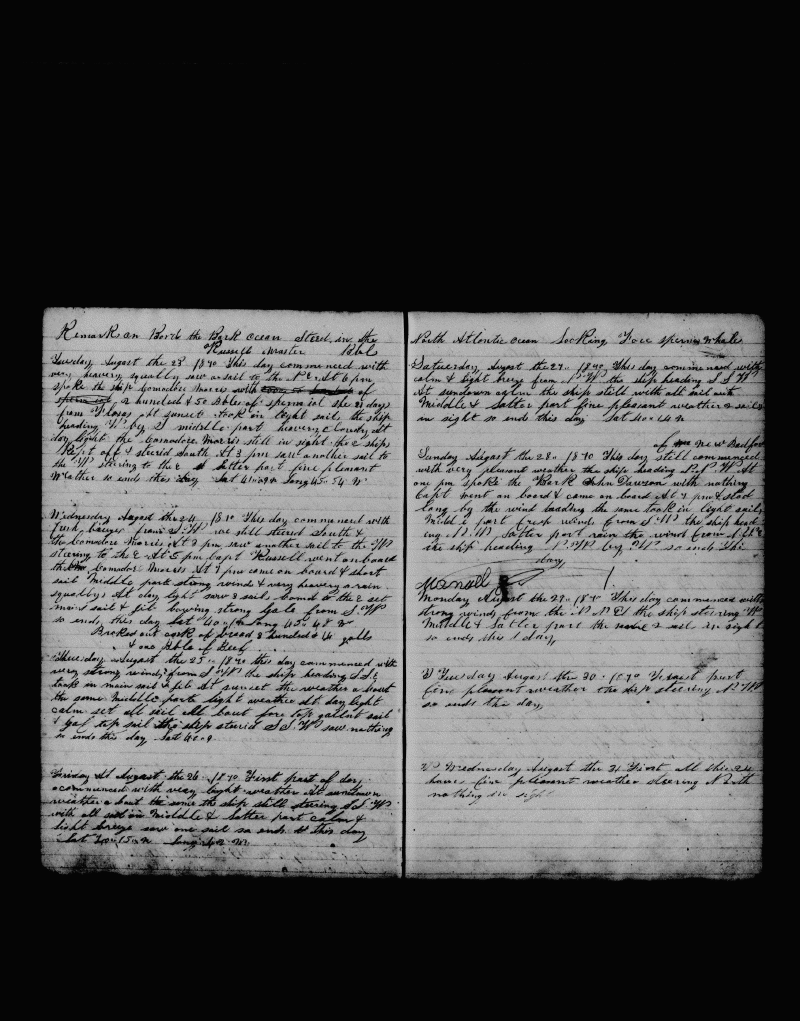 Remark on Bord the Bark Ocean Stered in the
Russell Master Bbls
Tuesday August the 23 1870 This day commenced with
very heavy squally saw a sail to the N E At 6 pm
spoke the ship Comodire Morris with of
sperm oil 2 hundred & 50 bbls of sperm iol she 21 days
from Flores At sunset took in light sail the ship
heading W by S middle part heavery cloudy At
day light the Comodore Morris still in sight the 2 ships
Kept off & stered South At 3 pm saw another sail to
the W stering to the E latter part fine pleasant
Weather so ends this Day Lat 41=09 N Long 45=54 W
Wednesday August the 24 1870 This day commenced with
fresh breeze from S. W we still stered South &
the Comodore Morris At 2 pm saw another sail to the W
steering to the E At 5 pm Capt Russell went on board
the Comodor Morris At 9 pm come on board & short
sail Middle part strong wind & very heavery a rain
squalls At day light saw 3 sails bound to the E set
main sail & jib blowing strong Gale from S. W
so ends this day Lat 40 Long 45=48 W
Broke out cask of bread 2 hundred & 14 galls
& one Bble of Beef
Thursday August the 25 1870 this day commenced with
very strong winds from S W the ship heading S S E
took in main sail & jib At sunset the weather a bout
the same Middle parts light weather At day light
calm set all sail All bout fore top gallent sail
& gaf top sail the ship stered S S W saw nothing
so ends this day Lat 42=9
Friday At August the 26 1870 First part of day
commenced with very light weather At sundown
weather a bout the same the ship still steering S S W
with all sail on Middle & latter part calm &
light breeze saw one sail so ends this day
Lat 40=15 N Long W
North Atlantic Ocean Looking Four sperm whale
Saturday August the 27 1870 This day commenced with
calm & light breeze from N W the ship heading S S W
At sundown calm the ship still with all sail out
Middle & latter part fine pleasant weather 2 sails
in sight so ends this day Lat 40=44 N
of New Bedford
Sunday August the 28 1870 This day still commenced
with very pleasant weather the ship heading W At
one pm spoke the Bark John Dawson with nothing
Capt went on board & came on board At 9 pm & stood
long by the wind heading the same took in light sails
Middle part fresh wind from S. W the ship head
ing N. W latter part rain the wind from
the ship heading N W by W so ends this
day
Manoell
Monday August the 29 1870 This day commenced with
strong winds from the N N E the ship steering W
Middle & latter part the same 2 sail in sight
so ends this day
Tuesday August the 30 1870 First part
fine pleasant weather the ship steering N W
so ends this day
Wednesday August the 31 First All this 24
hours fine pleasant weather steering North
nothing in sight